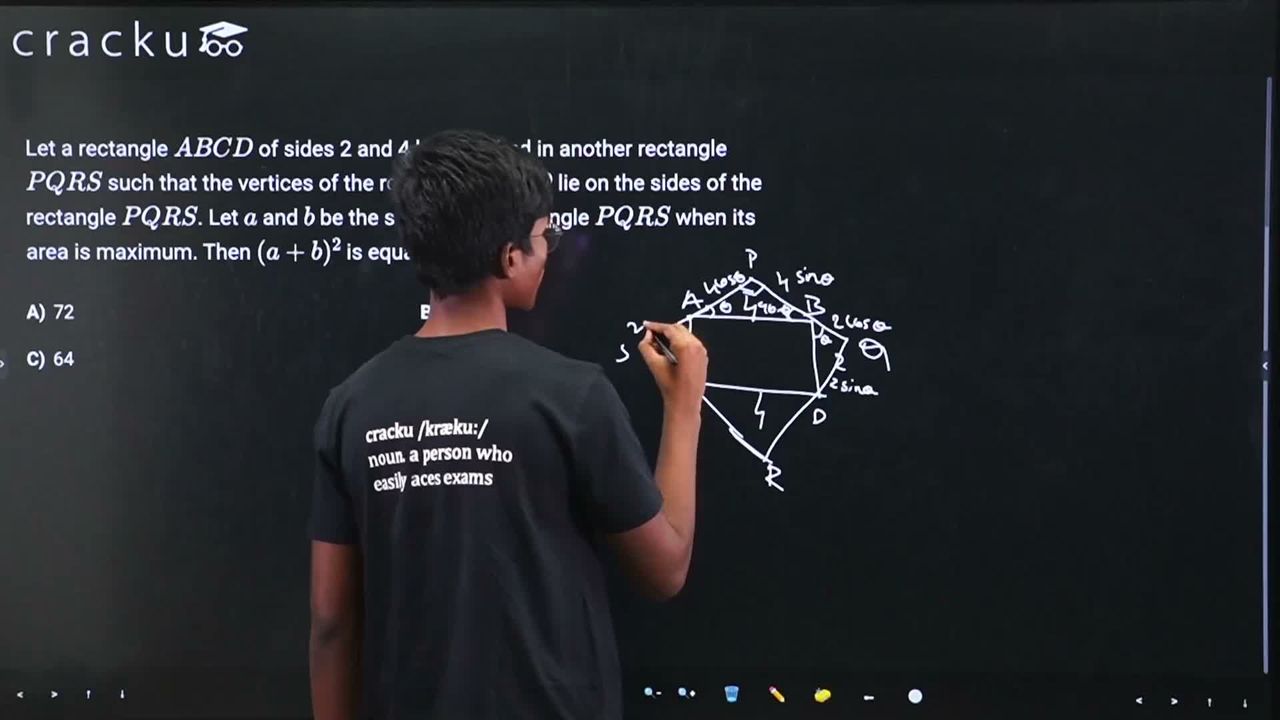 cracku
Let a rectangle ABCD of sides 2 and 4 in another rectangle
PQRS such that the vertices of the lie on the sides of the
rectangle PQRS. Let a and b be the PQRS when its
area is maximum. Then (a + b)² is
A) 72
C) 64
P
4cosθ 4 sinθ
A θ 4 90-θ B 2cosθ
2 θ Q
S 2
2sinθ
4 D
R
cracku /kræku:/
noun. a person who
easily aces exams